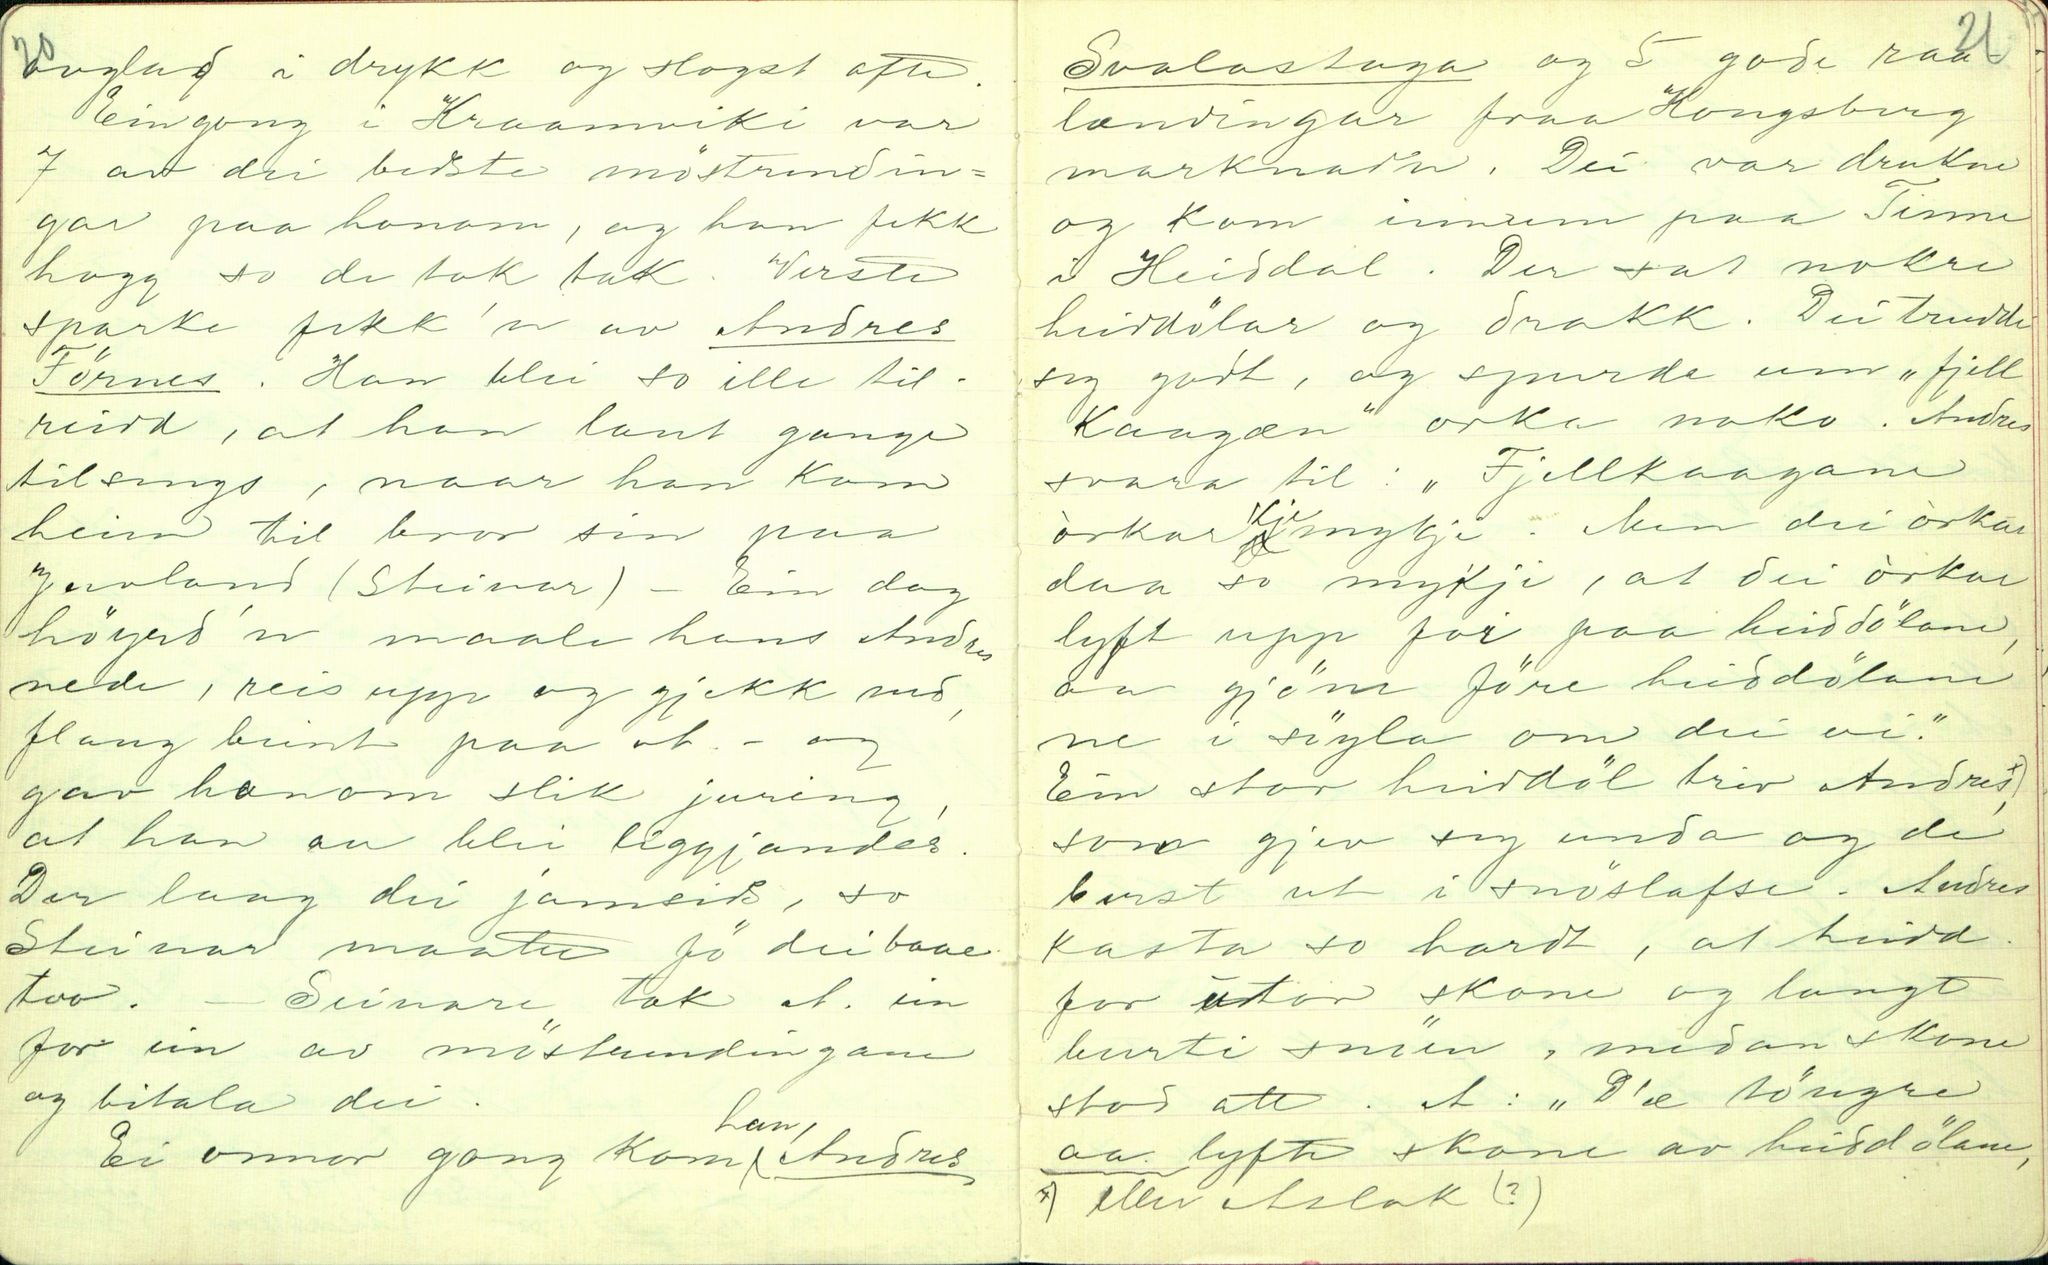 20
ovglad i drykk og slogst ofte.
Ein gong i Kraamviki var
7 av dei bedste möstrendin=
gar paa honom, og han fekk
hogg so de tok tak. Verste
sparke fekk 'n av Andres
Förnes. Han blei so ille til-
reidd, at han laut gange
tilsengs, naar han kom
heim til bror sin paa
Juvland (Steinar) – Ein dag
höyrd 'n maale hans Andres
nede, reis upp og gjekk ned,
flaug beint paa A. – og
gav honom slik juring,
at han au blei liggjandes.
Der laag dei jamsids, so
Steinar maatte fö dei baae
two. – Seinare tok A. ein
for ein av möstrendingane
og bitala dei.
Ei onnor gong kom han, Andres
21
Svalastoga og 5 gode raa-
lendingar fraa Kongsberg
marknad'n. Dei var drukne
og kom innum paa Tinne
i Heiddal. Der sat nokre
heiddölar og drakk. Dei trudde
seg godt, og spurde um „fjell
kaagæn" orka noko. Andres
svara til: „Fjellkaagane
òrkar 'kje mykji. Men dei òrkar
daa so mykji, at dei òrkar
lyft upp foi paa heiddölane,
aa gjöre före heiddölane
ne i söyla om dei vi."
Ein stor heiddöl treiv Andres x),
som gjev seg unda og de
berst ut i snöslafse. Andres
kasta so hardt, at heidd.
for utor skone og langt
burti snöen, medan skone
stod atte. A: „D'æ töngre
aa lyfte skone av heiddölane,
x) eller Aslak (?)